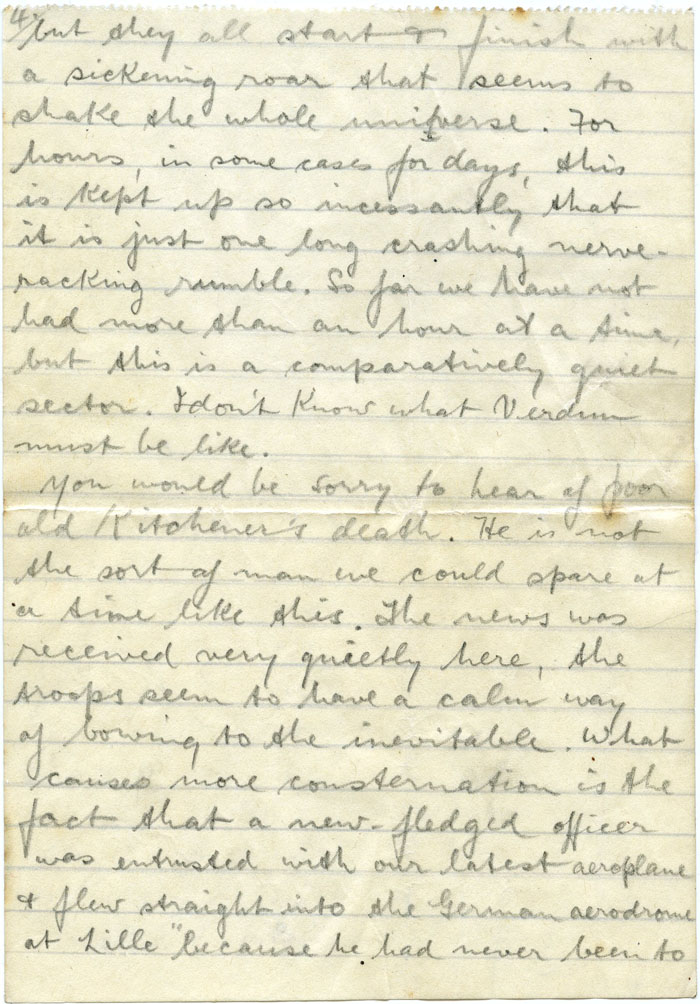 4.
but they all start & finish with
a sickening roar that seems to
shake the whole universe. For
hours, in some cases for days, this
is kept up so incessantly that
it is just one long crashing nerve-
racking rumble. So far we have not
had more than an hour at a time,
but this is a comparatively quiet
sector. I don't know what Verdun
must be like.
You would be sorry to hear of poor
old Kitchener's death. He is not
the sort of man we could spare at
a time like this. The news was
received very quietly here, the
troops seem to have a calm way
of bowing to the inevitable. What
causes more consternation is the
fact that a new-fledged officer
was entrusted with our latest aeroplane
& flew straight into the German aerodrome
at Lille "because he had never been to